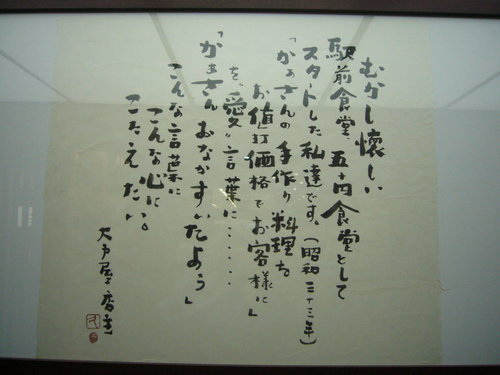 むかし懐しい
駅前食堂 五十円食堂として
スタートした私達です。(昭和三十三年)
「かあさんの手作り料理を
お値打価格でお客様に」
を"愛"言葉に・・・・・
「かあさん おなかすいたよう」
こんな言葉に
こんな心に
こたえたい。
大戸屋店主